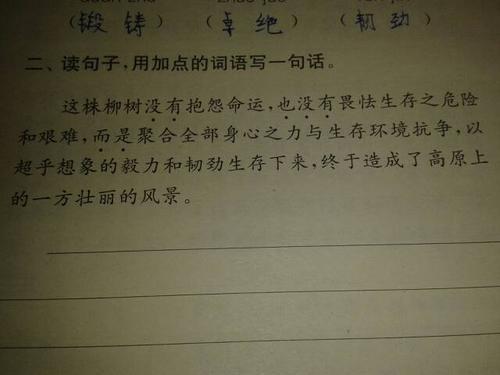 （锻铸）（卓绝）（韧劲）
二、读句子，用加点的词语写一句话。
这株柳树没有抱怨命运，也没有畏怯生存之危险
和艰难，而是聚合全部身心之力与生存环境抗争，以
超乎想象的毅力和韧劲生存下来，终于造成了高原上
的一方壮丽的风景。